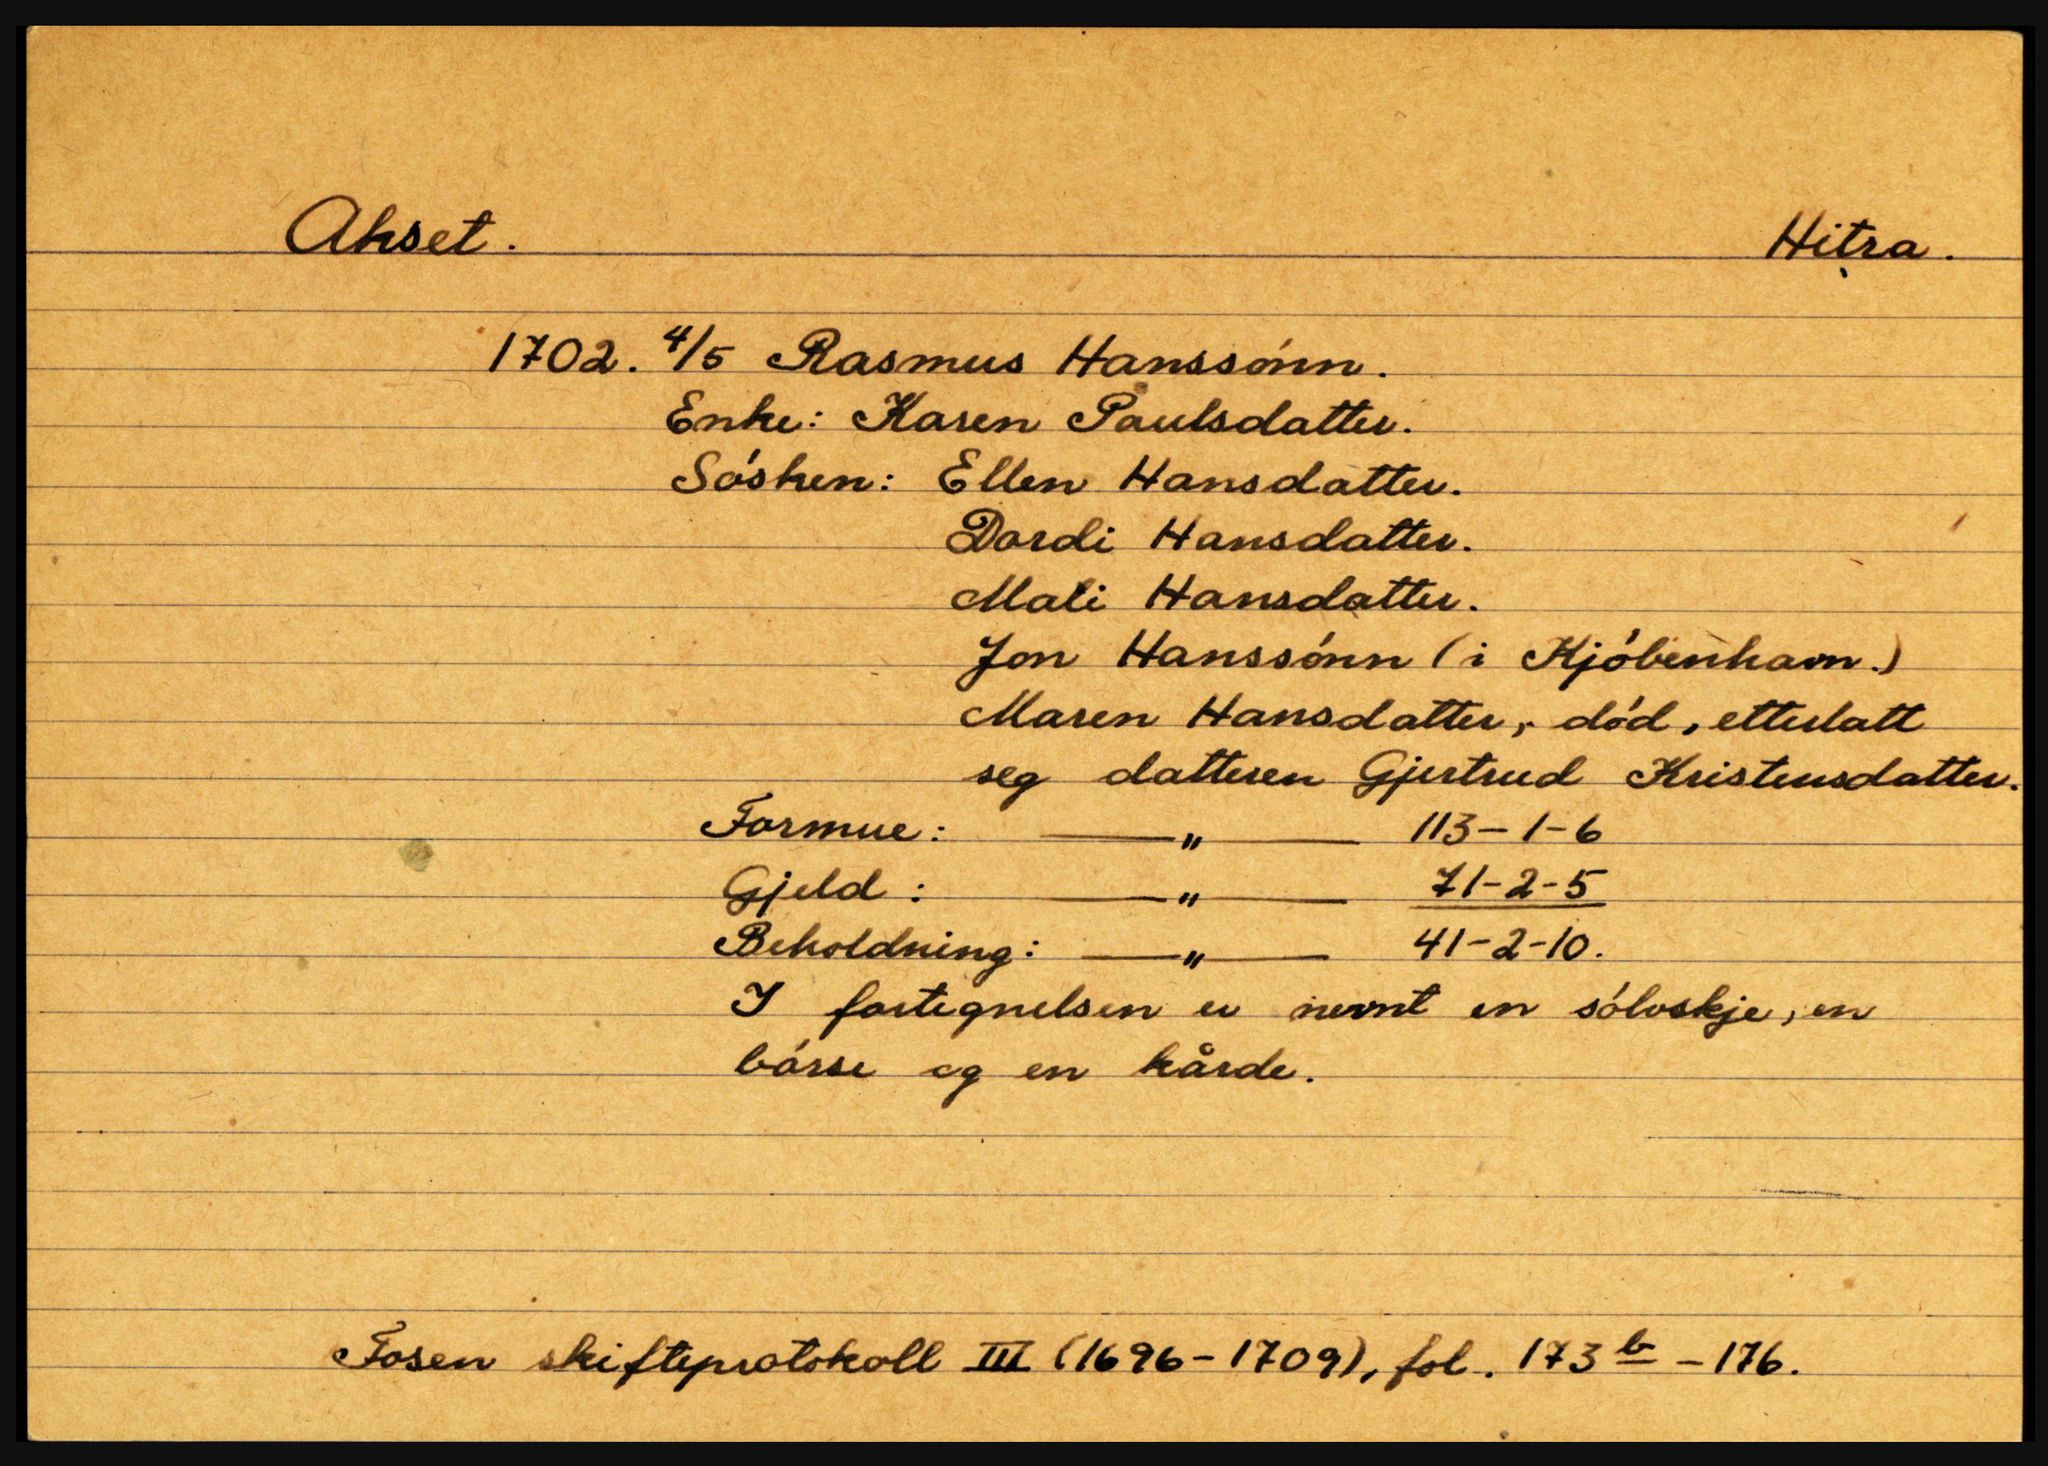 Akset. Hitra.
1702. 4/5 Rasmus Hanssónn.
Enke: Karen Paulsdatter.
Sósken: Ellen Hansdatter.
Dordi Hansdatter.
Mali Hansdatter.
Jon Hanssónn (i Kjóbenhavn.)
Maren Hansdatter, dód, etterlatt
seg datteren Gjertrud Kristensdatter.
Formue: —— " —— 113-1-6
Gjeld: —— " —— 71-2-5
Beholdning: —— " —— 41-2-10.
I fortegnelsen er nevnt en sólvskje, en
bórse og en kårde.
Fosen skifteprotokoll III (1696-1709), fol. 173 b - 176.